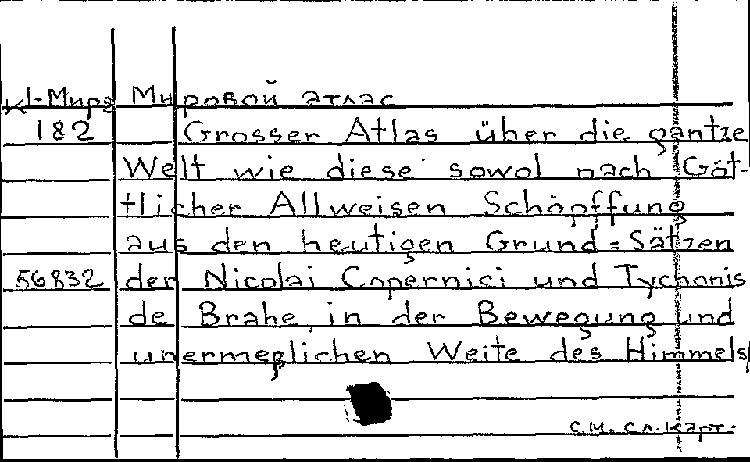 к1-Мира Мировой атлас
182 Grosser Atlas über die gantze
Welt wie diese sowol nach Göt-
tlicher Allweisen Schöpffung
aus den heutigen Grund=Sätzen
56832 der Nicolai Copernici und Tychonis
de Brahe, in der Bewegung und
unermeßlichen Weite des Himmels
см. сл. карт.